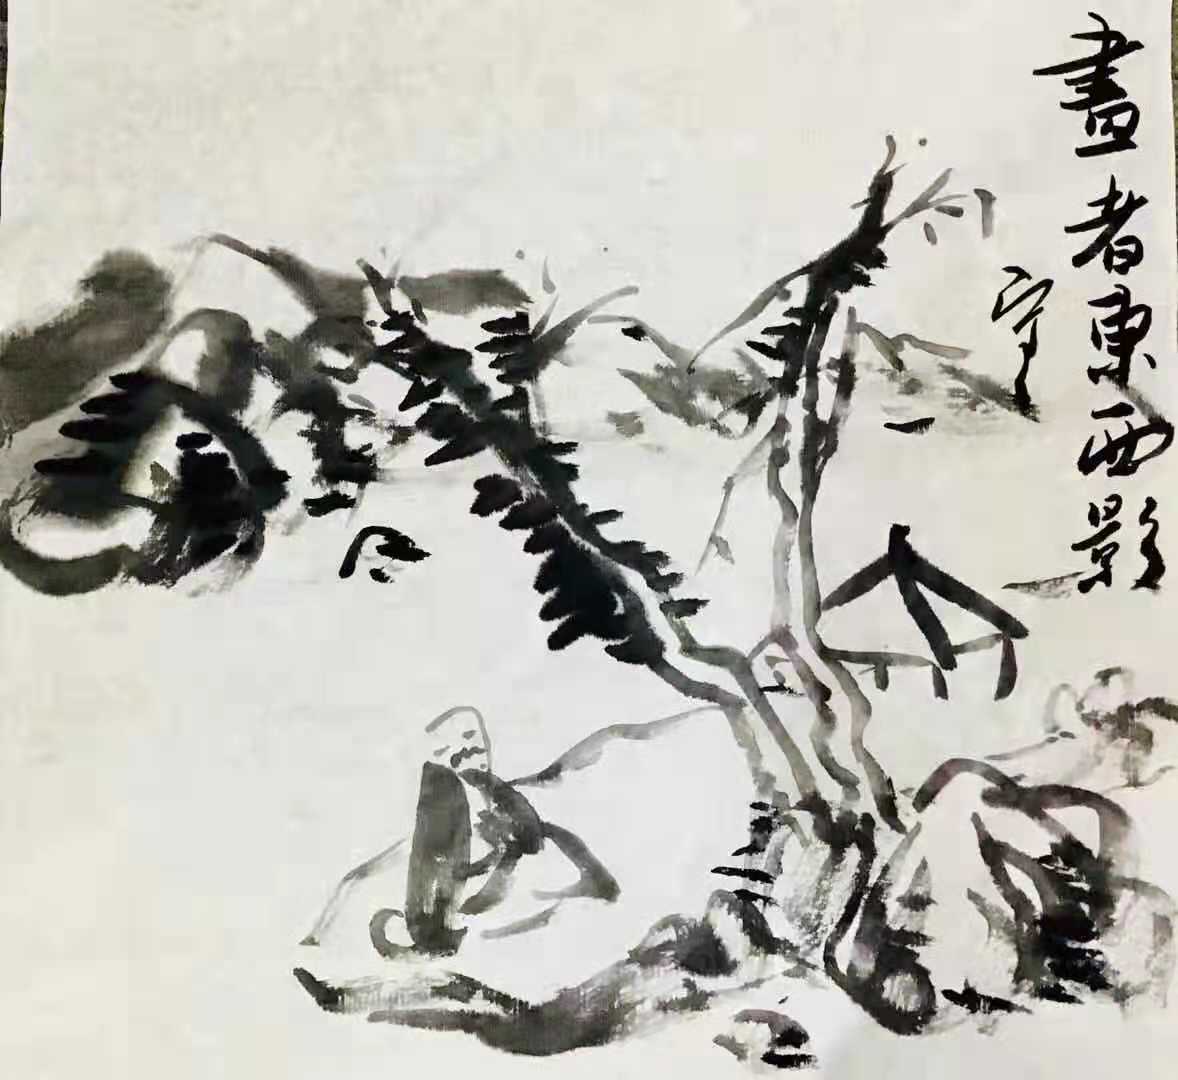 畫者東西影